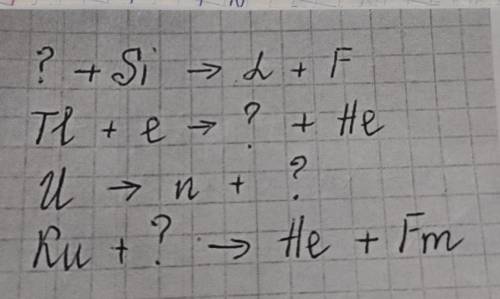 ? + Si → α + F
Tl + e → ? + He
U → n + ?
Ru + ? → He + Fm